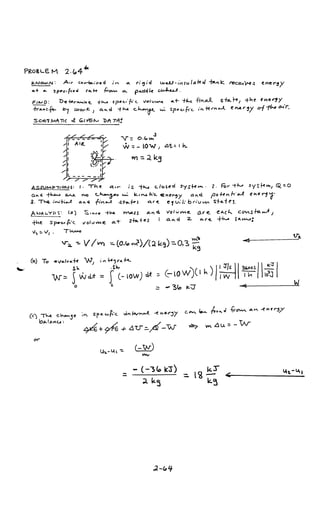 PROBLEM 2.64*
KNOWN: Air contained in a rigid well-insulated tank receives energy
at a specified rate from a paddle wheel.
FIND: Determine the specific volume at the final state, the energy
transfer by work, and the change in specific internal energy of the air.
SCHEMATIC & GIVEN DATA:
AIR
V = 0.6 m³
Ẇ = -10W, Δt = 1 h
m = 2 kg
ASSUMPTIONS: 1. The air is the closed system. 2. For the system, Q = 0
and there are no changes in kinetic energy and potential energy.
3. The initial and final states are equilibrium states.
ANALYSIS: (a) Since the mass and volume are each constant,
the specific volume at states 1 and 2 are the same;
v₂ = v₁. Thus
v₂ = V/m = (0.6 m³)/(2 kg) = 0.3 m³/kg
v₂
(b) To evaluate W, integrate
W = ∫₀^1h Ẇ dt = ∫₀^1h (-10W) dt = (-10 W)(1 h) |1 J/s / 1W| |3600 s / 1 h| |1 kJ / 10³ J|
= -36 kJ
W
(c) The change in specific internal energy can be found from an energy
balance:
ΔKE + ΔPE + ΔU = Q - W ⇒ m Δu = -W
or
u₂-u₁ = (-W)/m
= -(-36 kJ)/2 kg = 18 kJ/kg
u₂-u₁
2-64